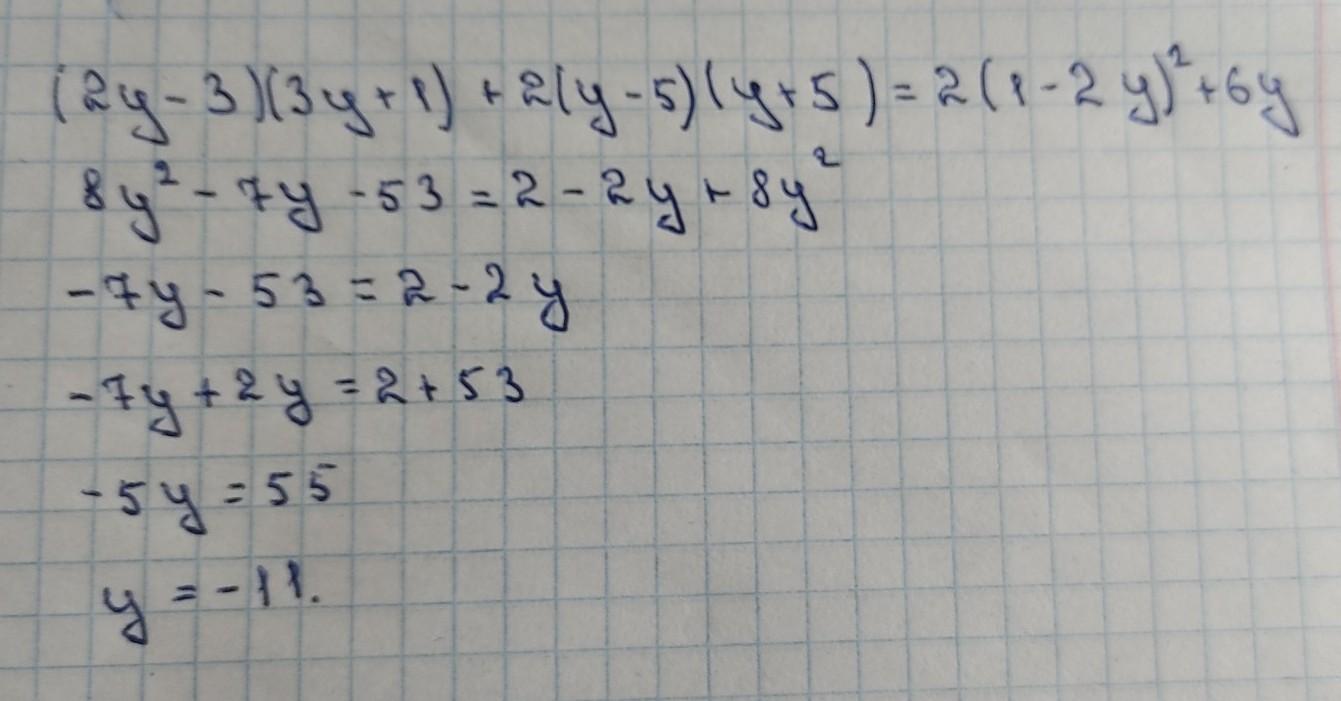 (2y - 3)(3y + 1) + 2(y - 5)(y + 5) = 2(1 - 2y)² + 6y
8y² - 7y - 53 = 2 - 2y + 8y²
-7y - 53 = 2 - 2y
-7y + 2y = 2 + 53
-5y = 55
y = -11.